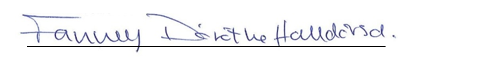 Fanney Dórothe Halldórsd.